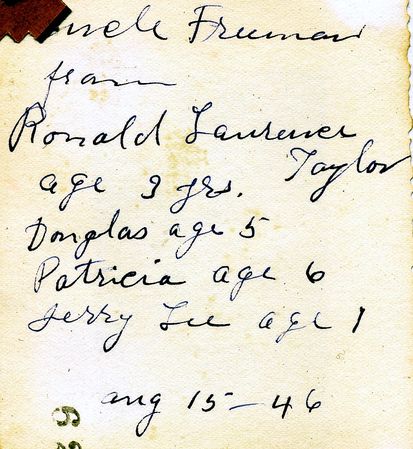 uncle Freeman
from
Ronald Laurence
Taylor
age 3 yrs.
Douglas age 5
Patricia age 6
Jerry Lee age 1
aug 15 - 46